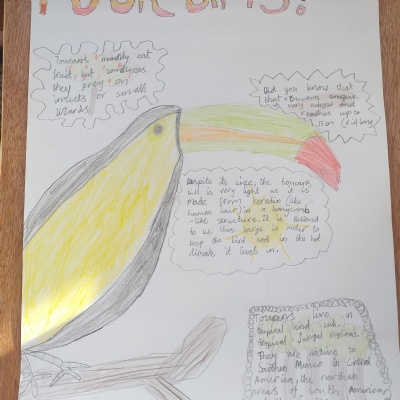 Toucans mainly eat
fruit, but sometimes
they prey on
insects or small
lizards.
Did you know that
that toucans tongue
is very narrow and
reaches up to
15cm (6 in) long
Despite its size, the toucans
bill is very light as it is
made from keratin (like
human hair) in a honeycomb
-like structure. It is believed
to be this large in order to
keep the bird cool in the hot
climate it lives in.
Toucans live in
tropical and sub-
tropical Jungal regions.
They are native to
Southern Mexico in Central
America, the northern
areas of South American